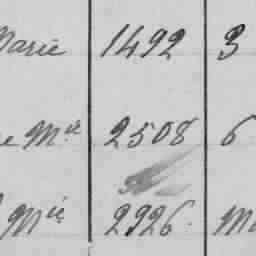 Marie 1492 3
e M.ie 2508 6
Mie 2926.